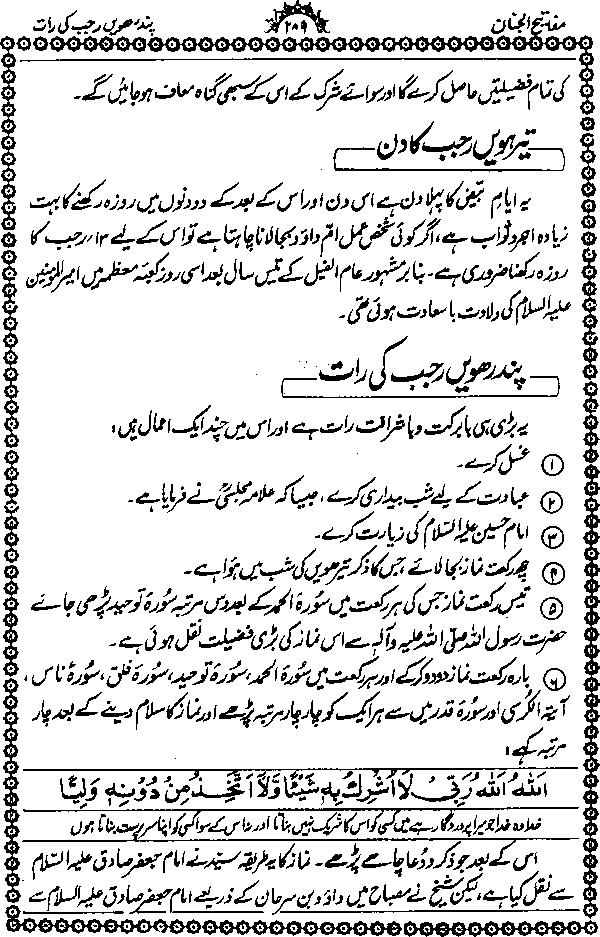 مفاتیح الجنان
۲۸۹
پندرھویں رجب کی رات
کی تمام فضیلتیں حاصل کرے گا اور سوائے شرک کے اس کے سبھی گناہ معاف ہو جائیں گے۔
تیرہویں رجب کا دن
یہ ایام بیض کا پہلا دن ہے اس دن اور اس کے بعد کے دو دنوں میں روزہ رکھنے کا بہت
زیادہ اجر و ثواب ہے، اگر کوئی شخص عمل ام داؤد بجا لانا چاہتا ہے تو اس کے لیے ۱۳؍رجب کا
روزہ رکھنا ضروری ہے۔ بنا بر مشہور عام الفیل کے تیس سال بعد اسی روز کعبۂ معظمہ میں امیرالمومنین
علیہ السلام کی ولادت با سعادت ہوئی تھی۔
پندرھویں رجب کی رات
یہ بڑی ہی بابرکت و با شرافت رات ہے اور اس میں چند ایک اعمال ہیں:
① غسل کرے۔
② عبادت کے لیے شب بیداری کرے، جیسا کہ علامہ مجلسیؒ نے فرمایا ہے۔
③ امام حسین علیہ السلام کی زیارت کرے۔
④ چھ رکعت نماز بجا لائے جس کا ذکر تیرھویں کی شب میں ہوا ہے۔
⑤ تیس رکعت نماز جس کی ہر رکعت میں سورۃ الحمد کے بعد دس مرتبہ سورۃ توحید پڑھی جائے
حضرت رسول اللہ صلی اللہ علیہ وآلہ سے اس نماز کی بڑی فضیلت نقل ہوئی ہے۔
⑥ بارہ رکعت نماز دو دو کر کے اور ہر رکعت میں سورۃ الحمد، سورۃ توحید، سورۃ فلق، سورۃ ناس،
آیۃ الکرسی اور سورۃ قدر میں سے ہر ایک کو چار چار مرتبہ پڑھے اور نماز کا سلام دینے کے بعد چار
مرتبہ کہے:
اَللهُ اَللهُ رَبِّیْ لَا اُشْرِكُ بِهٖ شَیْئًا وَّلَا اَتَّخِذُ مِنْ دُوْنِهٖ وَلِیًّا
خدا وہ خدا جو میرا پروردگار ہے میں کسی کو اس کا شریک نہیں بناتا اور نہ اس کے سوا کسی کو اپنا سرپرست بناتا ہوں
اس کے بعد جو ذکر و دعا چاہے پڑھے۔ نماز کا یہ طریقہ سید نے امام جعفر صادق علیہ السلام
سے نقل کیا ہے، لیکن شیخ نے مصباح میں داؤد بن سرحان کے ذریعے امام جعفر صادق علیہ السلام سے